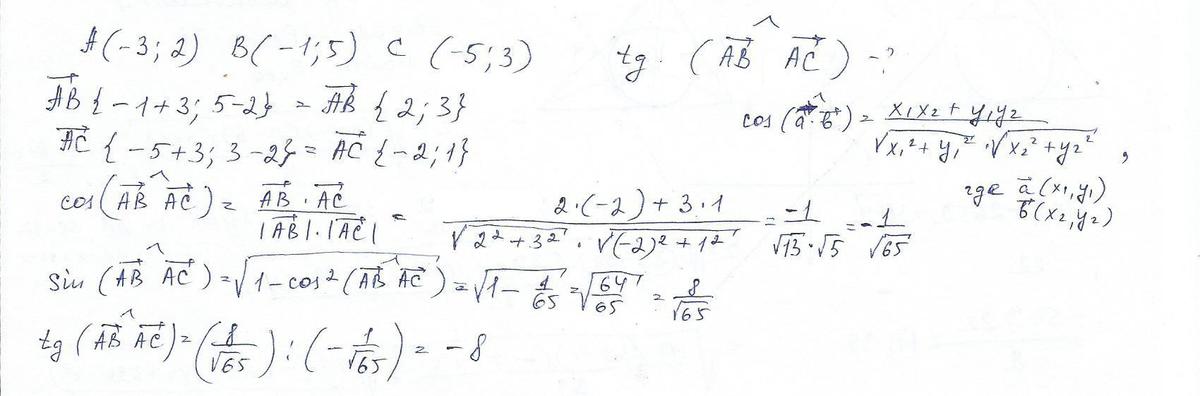 A(-3; 2) B(-1; 5) C (-5; 3) tg. (AB^→ ^ AC^→) - ?
AB^→ {-1+3; 5-2} = AB^→ {2; 3}
cos (a^→ ^ b^→) = (x₁x₂ + y₁y₂) / (√(x₁² + y₁²) · √(x₂² + y₂²)),
AC^→ {-5+3; 3-2} = AC^→ {-2; 1}
где a^→ (x₁, y₁)
b^→ (x₂, y₂)
cos(AB^→ ^ AC^→) = (AB^→ · AC^→) / (|AB^→| · |AC^→|) = (2·(-2) + 3·1) / (√(2² + 3²) · √((-2)² + 1²)) = -1 / (√13 · √5) = - 1/√65
sin (AB^→ ^ AC^→) = √(1 - cos² (AB^→ ^ AC^→)) = √(1 - 1/65) = √(64/65) = 8/√65
tg (AB^→ ^ AC^→) = (8/√65) : (- 1/√65) = -8